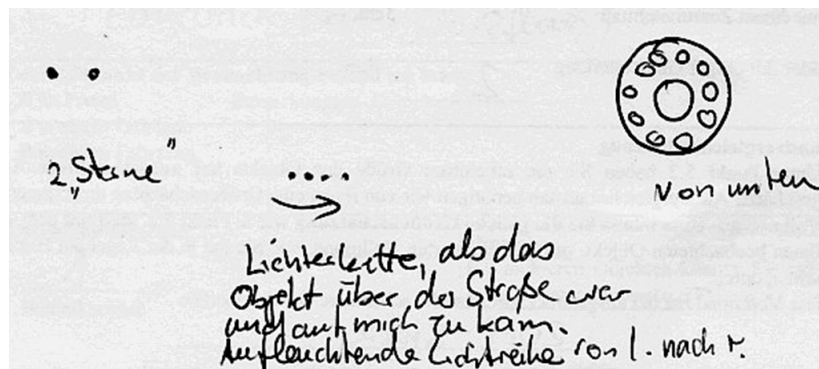 2 „Sterne"
von unten
Lichterkette, als das
Objekt über der Straße war
und auf mich zu kam.
Aufleuchtende Lichtreihe von l. nach r.